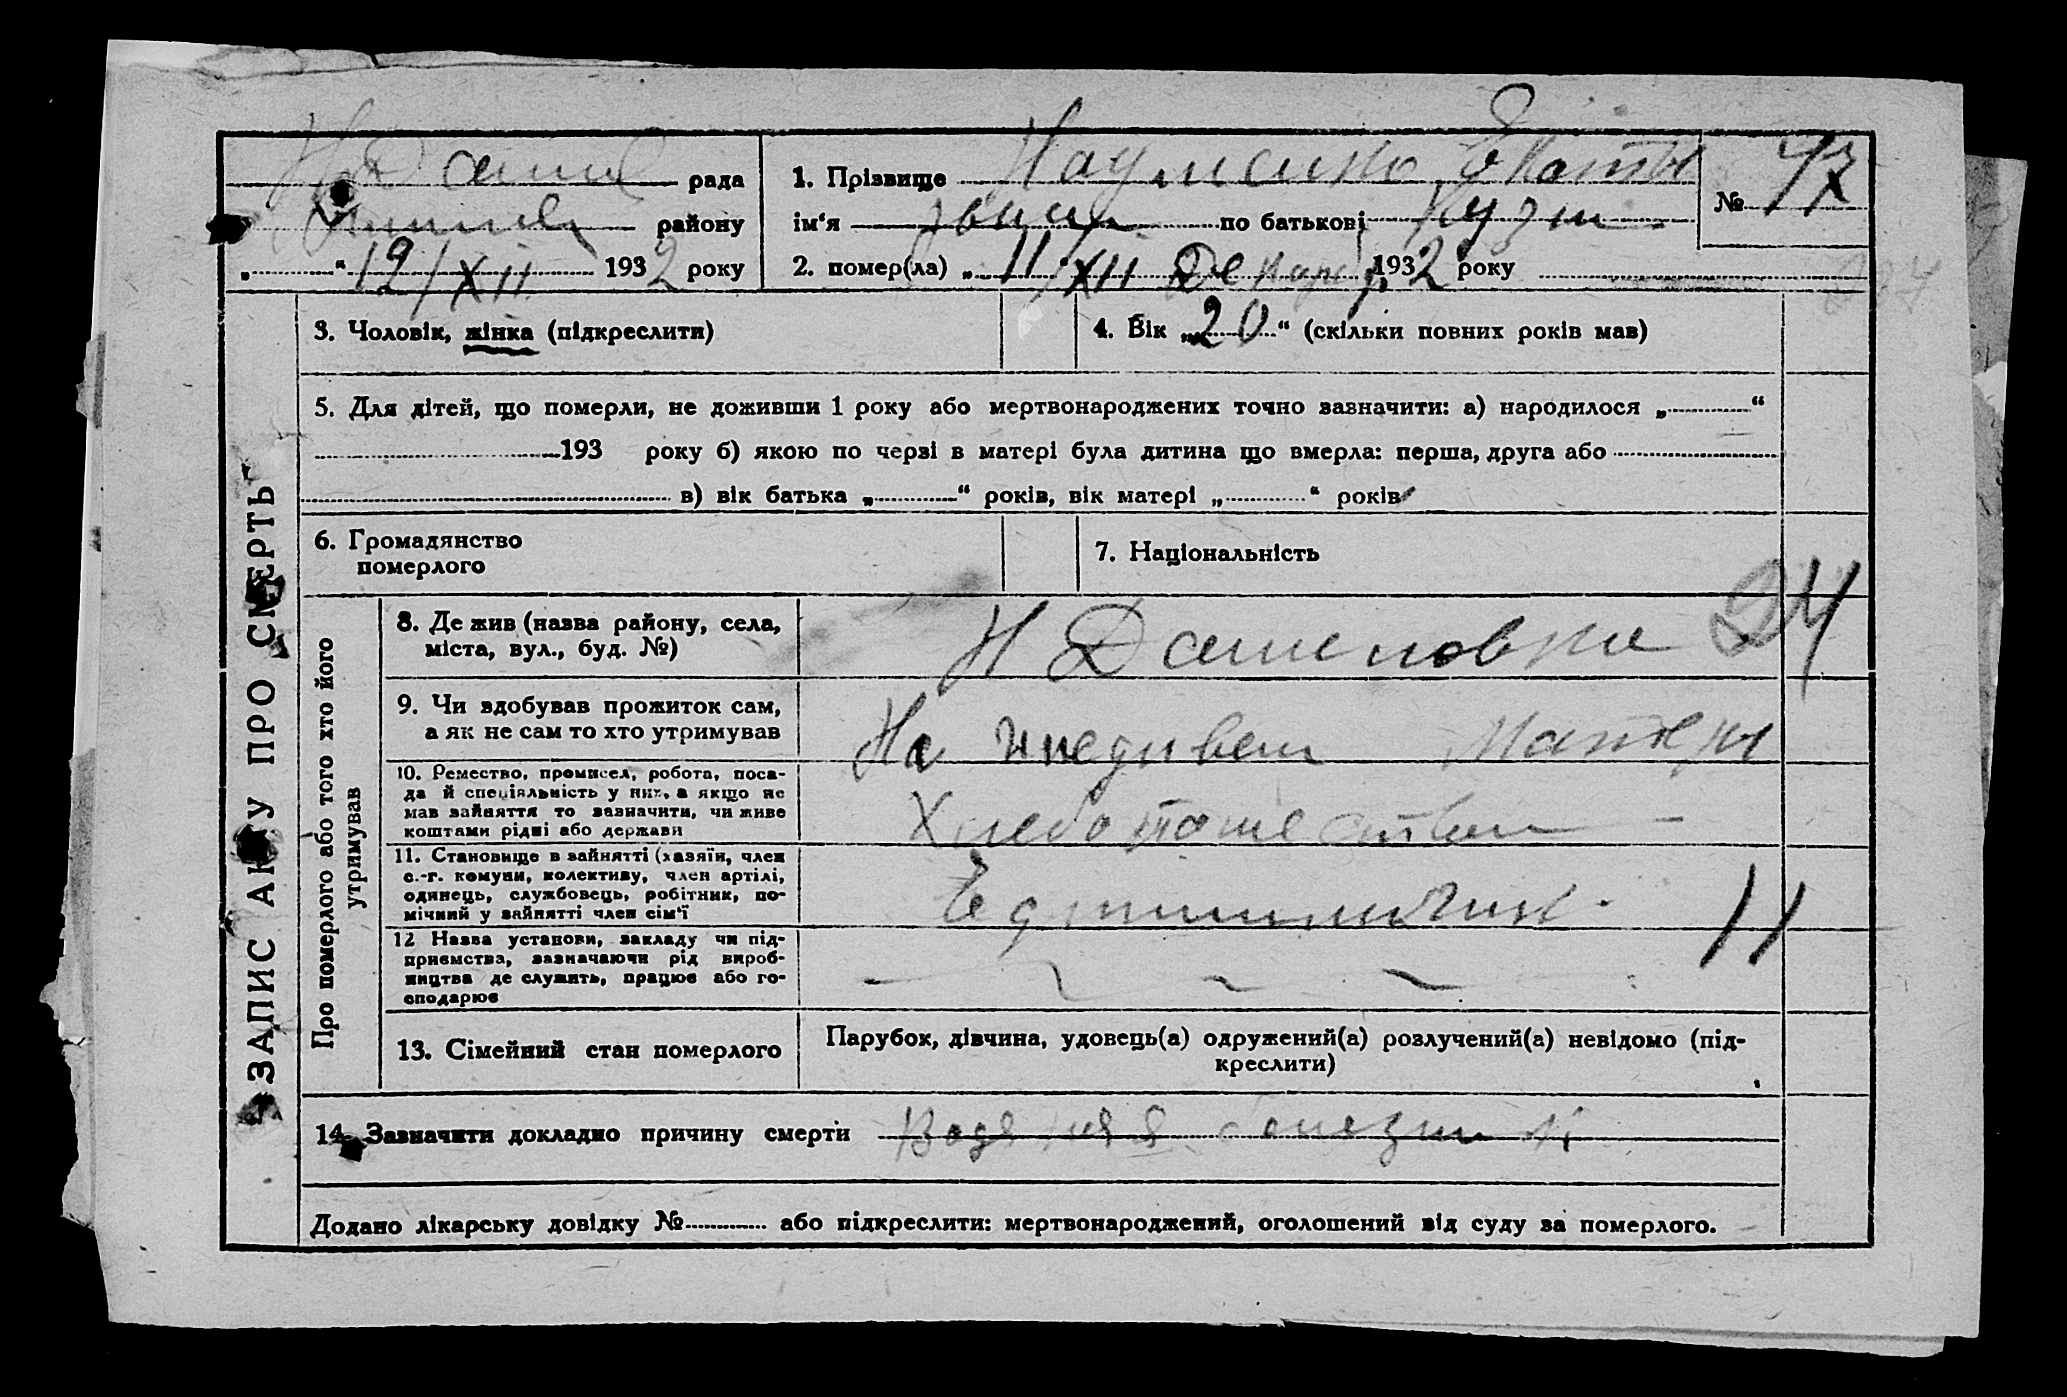 рада
району
„ “ 19/XII 1932 року
1. Прізвище Науменко
ім‘я по батькові Кузм
№ 47
2. помер(ла) „ 11/XII Декабр 1932 року
ЗАПИС АКТУ ПРО СМЕРТЬ
3. Чоловік, жінка (підкреслити)
4. Вік „20“ (скільки повних років мав)
5. Для дітей, що померли, не доживши 1 року або мертвонароджених точно зазначити: а) народилося „ “
193 року б) якою по черзі в матері була дитина що вмерла: перша, друга або
в) вік батька „ “ років, вік матері „ “ років
6. Громадянство
померлого
7. Національність
Про померлого або того хто його
утримував
8. Де жив (назва району, села,
міста, вул., буд. №)
Н Даниловка 24
9. Чи здобував прожиток сам,
а як не сам то хто утримував
На иждевен Матери
10. Ремество, промисел, робота, поса-
да й спеціяльність у них, а якщо не
мав зайняття то зазначити, чи живе
коштами рідні або держави
Хлебопашество
11. Становище в зайнятті (хазяїн, член
с.-г. комуни, колективу, член артілі,
одинець, службовець, робітник, по-
мічний у зайнятті член сім'ї
11
12 Назва установи, закладу чи під-
приємства, зазначаючи рід вироб-
ництва де служить, працює або го-
сподарює
13. Сімейний стан померлого
Парубок, дівчина, удовець(а) одружений(а) розлучений(а) невідомо (під-
креслити)
14. Зазначити докладно причину смерти Водяная
Додано лікарську довідку № або підкреслити: мертвонароджений, оголошений від суду за померлого.